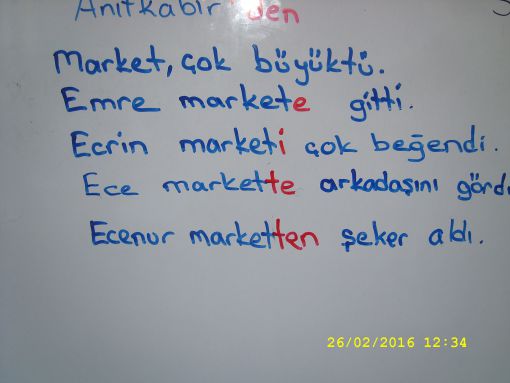 Anıtkabir'den
Market, çok büyüktü.
Emre markete gitti.
Ecrin marketi çok beğendi.
Ece markette arkadaşını gördü
Ecenur marketten şeker aldı.
26/02/2016 12:34